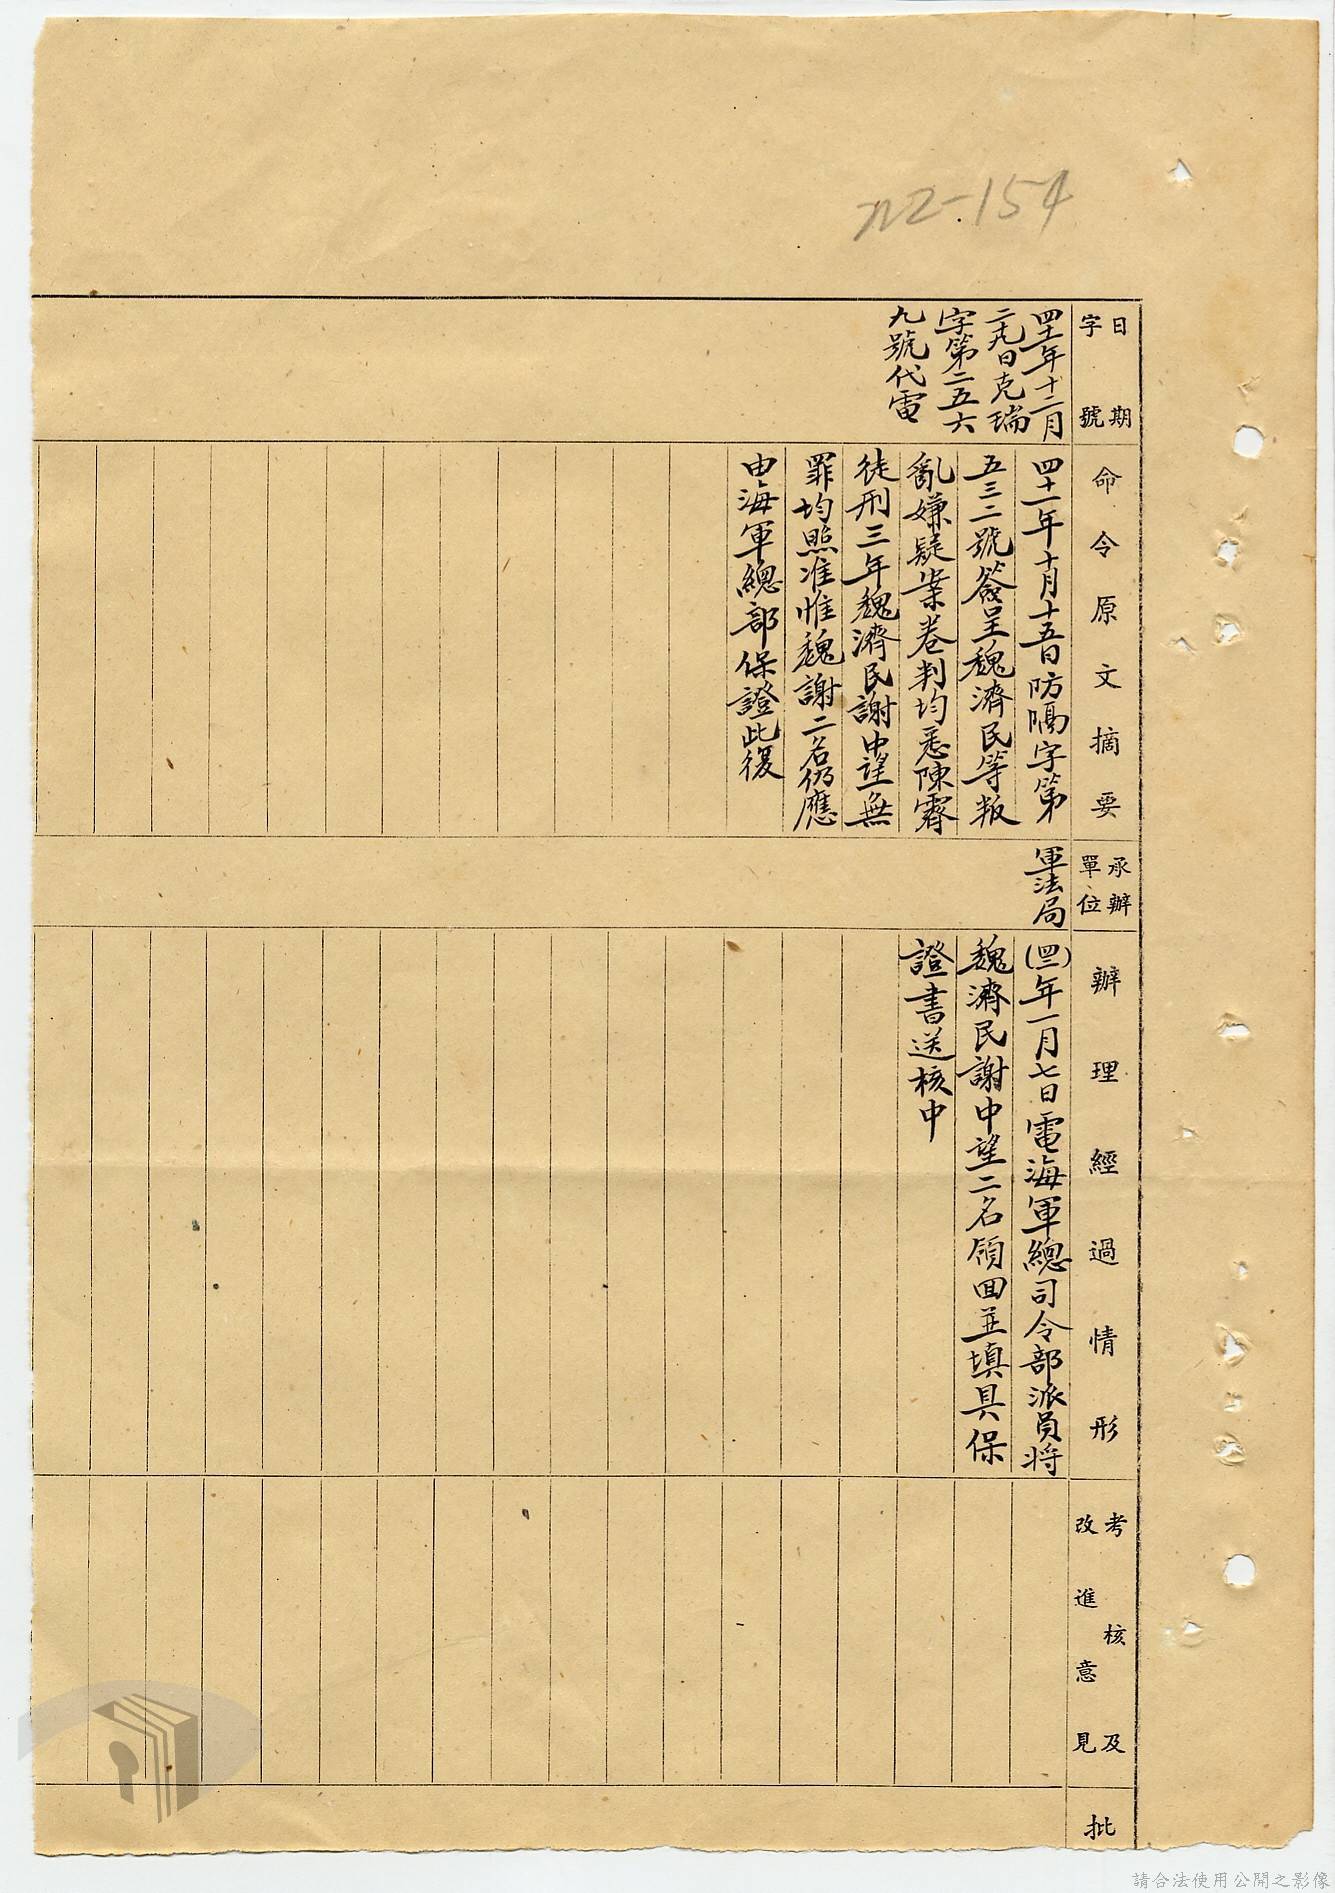 N2-154
日期
字號
四十一年十二月
二十九日克瑞
字第二五六
九號代電
命令原文摘要
四十一年十月十五日防隔字第
五三二號簽呈魏濟民等叛
亂嫌疑案卷判均悉陳霽
徒刑三年魏濟民謝中望無
罪均照准惟魏謝二名仍應
由海軍總部保證此復
承辦
單位
軍法局
辦理經過情形
(四二)年一月七日電海軍總司令部派員將
魏濟民謝中望二名領回並填具保
證書送核中
考核及
改進意見
批
請合法使用公開之影像